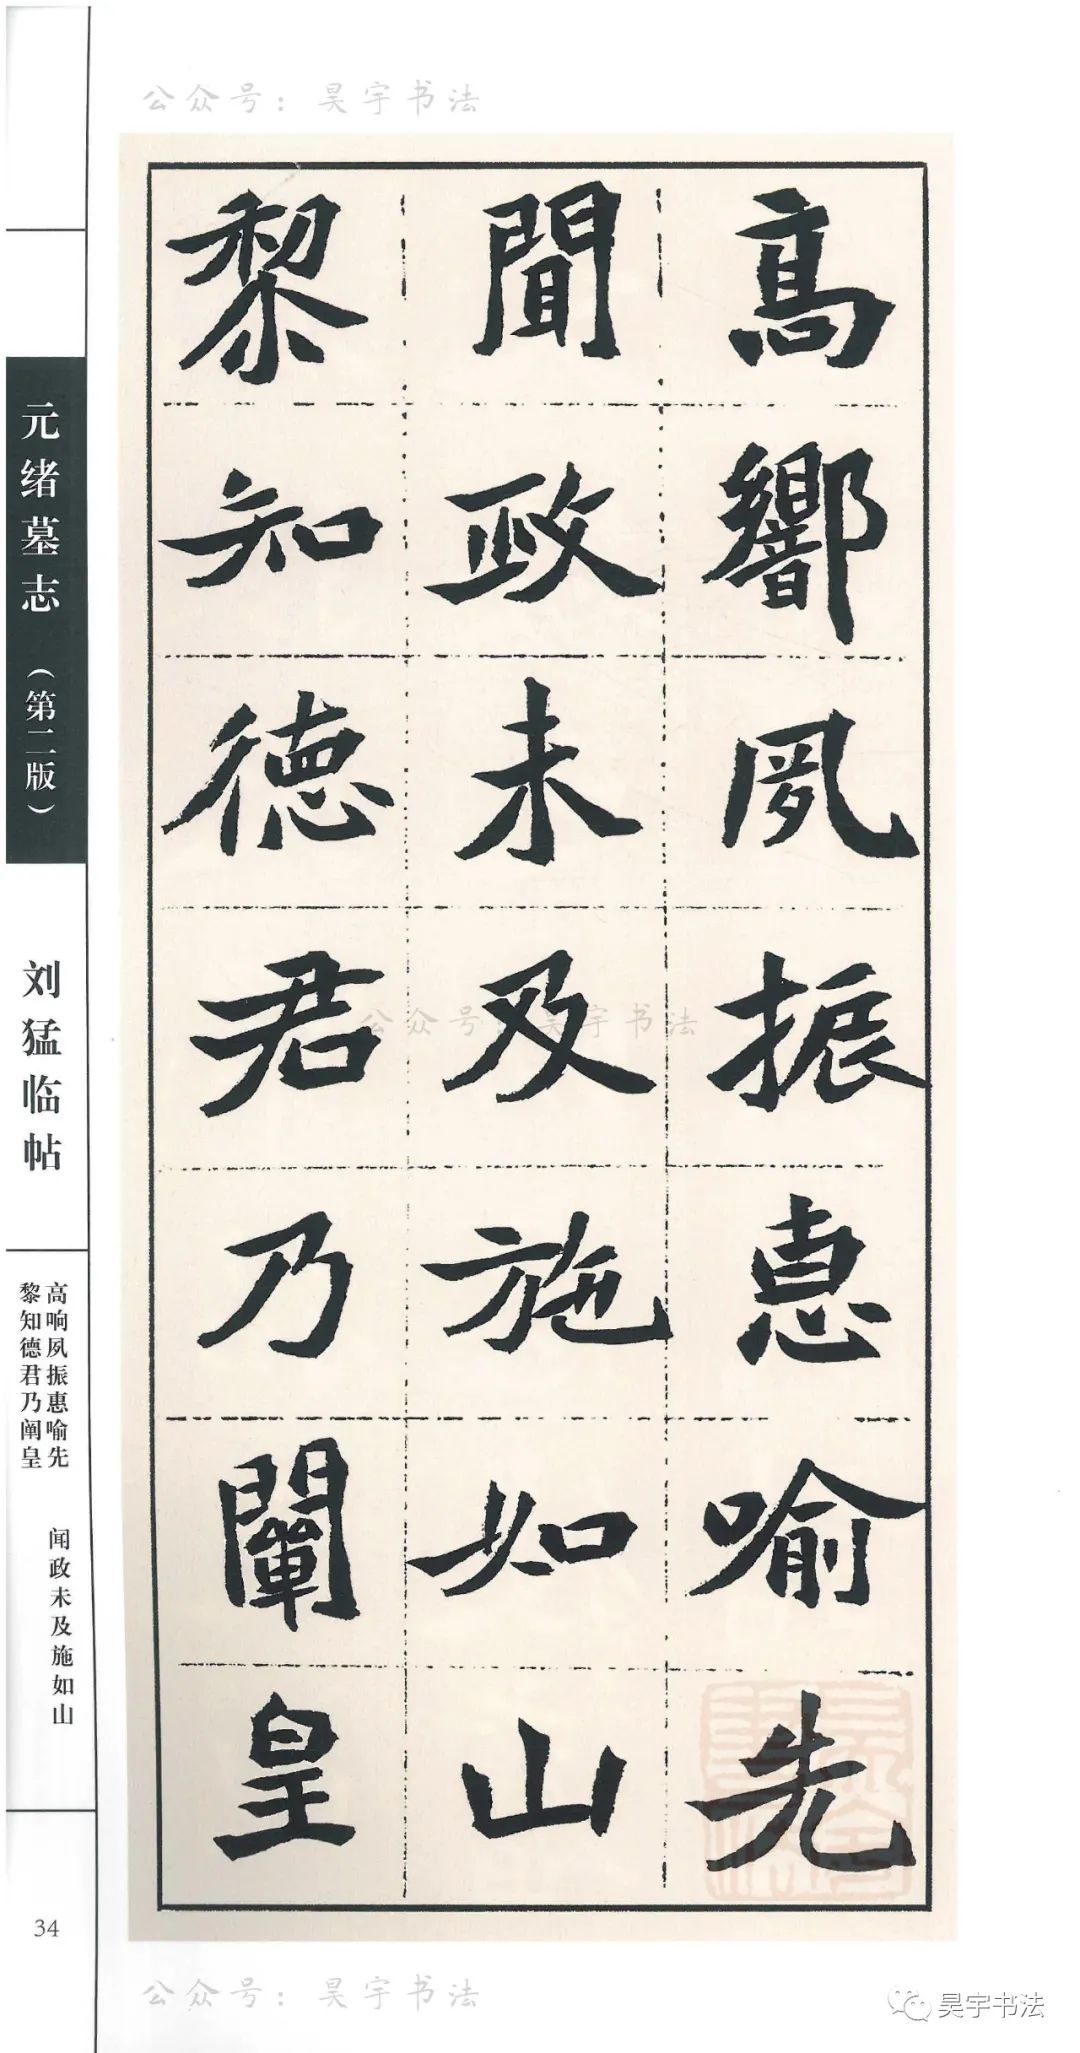 公众号：昊宇书法
高響夙振惠喻先
聞政未及施如山
黎知德君乃闡皇
公众号：昊宇书法
元绪墓志（第二版）
刘猛临帖
高响夙振惠喻先
黎知德君乃阐皇
闻政未及施如山
34
公众号：昊宇书法
昊宇书法